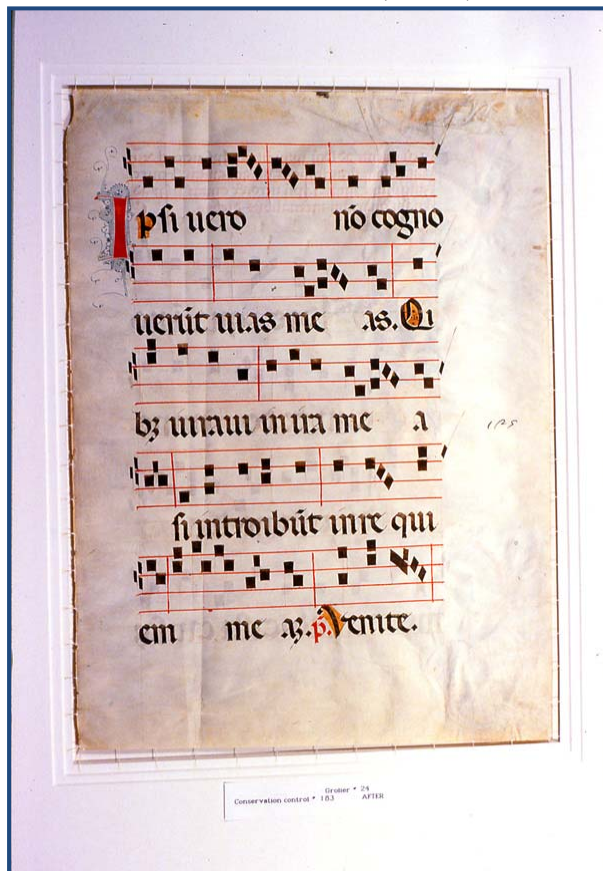 Ipsi uero nō cogno
uerūt uias me as. Qi
bꝫ iuraui in ira me a
si introibūt in re qui
em me aꝫ. p̄. Venite.
125
Grolier * 24
Conservation control * 183 AFTER